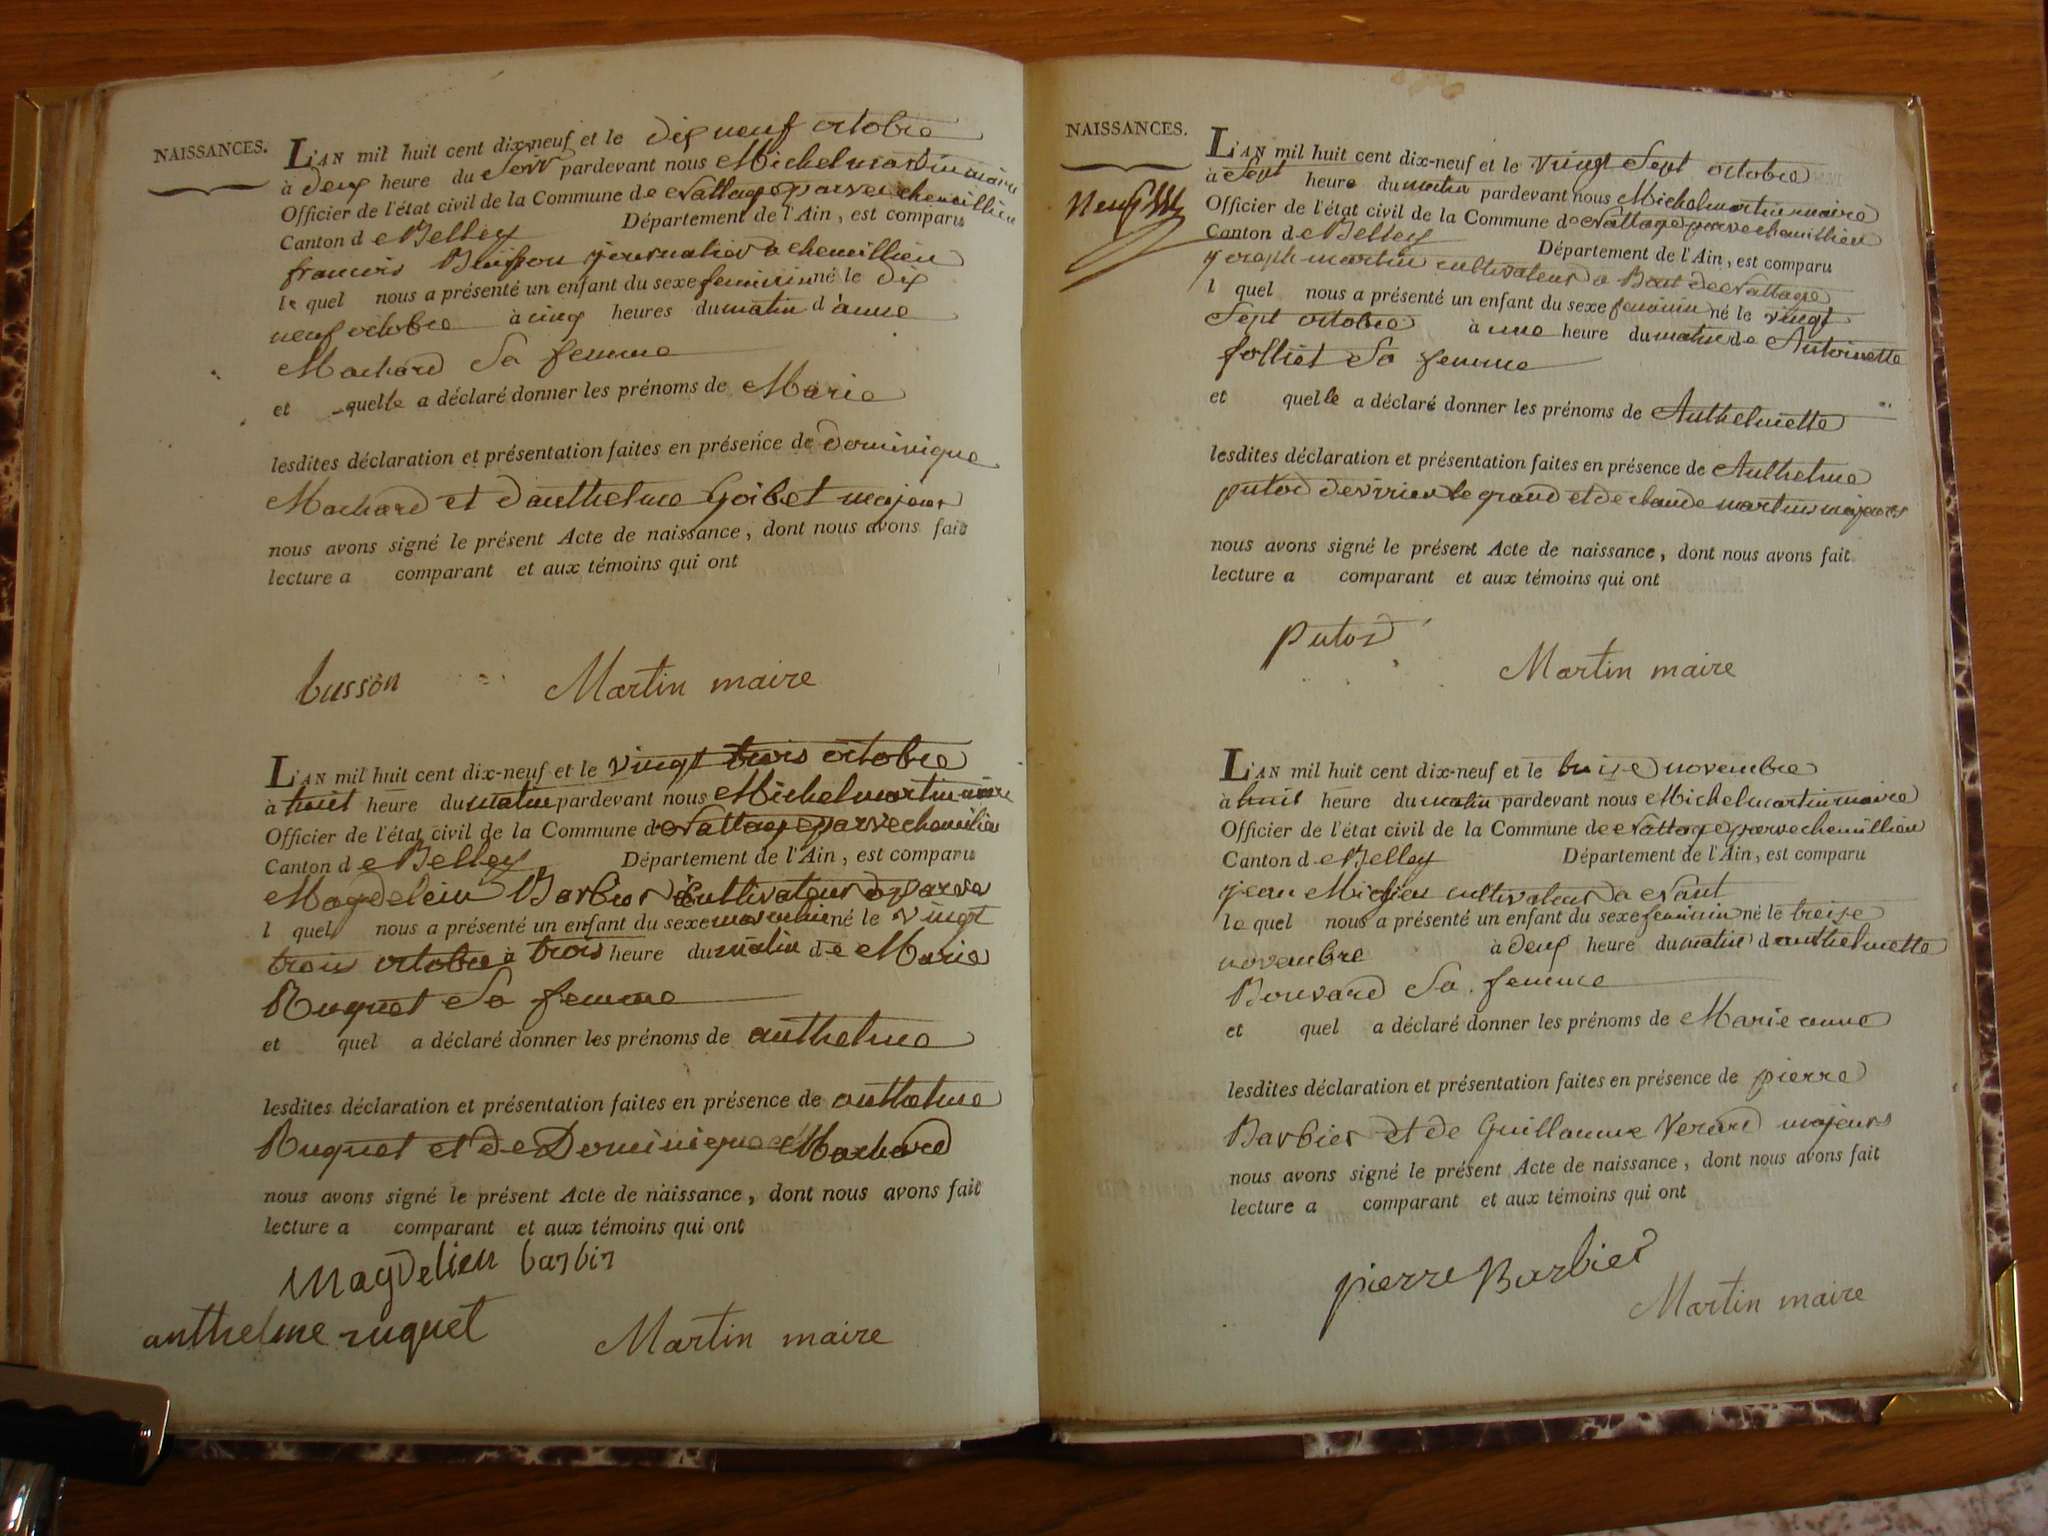 NAISSANCES.
L'AN mil huit cent dix-neuf et le dix neuf octobre
à deux heure du soir pardevant nous Michel martin maire
Officier de l'état civil de la Commune de Nattage parve chemillieu
Canton de Belley Département de l'Ain, est comparu
francois Buisson journalier a chemillieu
le quel nous a présenté un enfant du sexe feminin né le dix
neuf octobre à cinq heures du matin d'anne
Machard sa femme
et quelle a déclaré donner les prénoms de Marie
lesdites déclaration et présentation faites en présence de dominique
Machard et d'anthelme Goibet majeurs
nous avons signé le présent Acte de naissance, dont nous avons fait
lecture a comparant et aux témoins qui ont
busson Martin maire
L'AN mil huit cent dix-neuf et le vingt trois octobre
à huit heure du matin pardevant nous Michel martin maire
Officier de l'état civil de la Commune de Nattage parve chemilieu
Canton de Belley Département de l'Ain, est comparu
Magdelein Barbier cultivateur a parve
l quel nous a présenté un enfant du sexe masculin né le vingt
trois octobre à trois heure du matin de Marie
Ruquet sa femme
et quel a déclaré donner les prénoms de anthelme
lesdites déclaration et présentation faites en présence de anthelme
Ruquet et de Dominique Machard
nous avons signé le présent Acte de naissance, dont nous avons fait
lecture a comparant et aux témoins qui ont
Magdelien barbir
anthelme ruquet Martin maire
NAISSANCES.
L'AN mil huit cent dix-neuf et le vingt sept octobre
à sept heure du matin pardevant nous Michel martin maire
Officier de l'état civil de la Commune de Nattage parve chemillieu
Canton de Belley Département de l'Ain, est comparu
joseph martin cultivateur a Bout de Nattage
l quel nous a présenté un enfant du sexe feminin né le vingt
sept octobre à une heure du matin de Antoinette
folliet sa femme
et quelle a déclaré donner les prénoms de Anthelmette
lesdites déclaration et présentation faites en présence de Anthelme
putod de virieu le grand et de claude martin majeurs
nous avons signé le présent Acte de naissance, dont nous avons fait
lecture a comparant et aux témoins qui ont
putod
Martin maire
L'AN mil huit cent dix-neuf et le treize novembre
à huit heure du matin pardevant nous Michel martin maire
Officier de l'état civil de la Commune de Nattage parve chemillieu
Canton de Belley Département de l'Ain, est comparu
jean Michieu cultivateur a
le quel nous a présenté un enfant du sexe feminin né le treize
novembre à deux heure du matin d anthelmette
Bouvard sa femme
et quel a déclaré donner les prénoms de Marie anne
lesdites déclaration et présentation faites en présence de pierre
Barbier et de Guillaume Verard majeurs
nous avons signé le présent Acte de naissance, dont nous avons fait
lecture a comparant et aux témoins qui ont
pierre Barbier
Martin maire